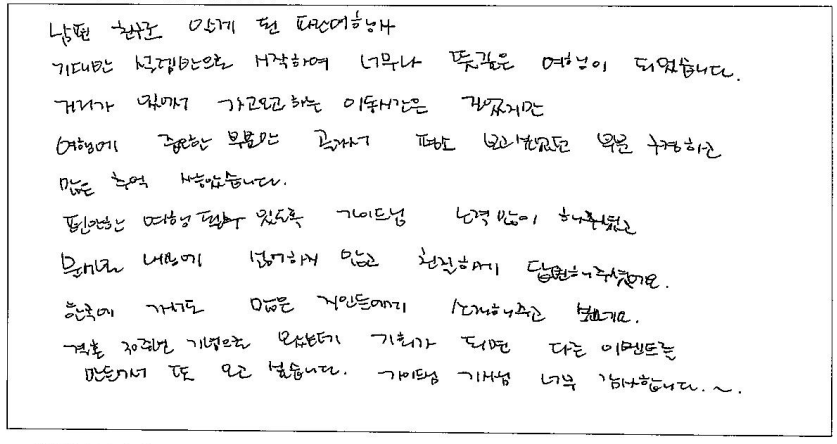 남편 친구로 알게 된 파란여행사
기대만 설렘만으로 시작하여 너무나 뜻깊은 여행이 되었습니다.
거리가 있어서 가고오고 하는 이동시간은 길었지만
여행에 중요한 부분만 골라서 평소 보고 부분 구경하고
많은 추억 쌓았습니다.
편안한 여행 될수 있도록 가이드님 노력 많이 해주셨고
내용에 않고 친절하게 답변해주셨어요.
한국에 가서도 많은 지인들에게 소개해주고
결혼 30주년 기념으로 왔는데 기회가 되면 다른 이벤트를
만들어서 또 오고 싶습니다. 가이드님 기사님 너무 감사합니다.~.